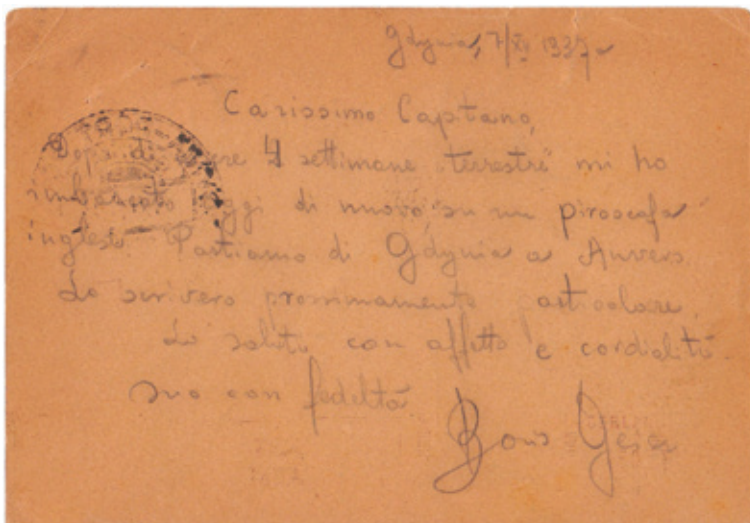 Gdynia, 7/XII 1937
Carissimo Capitano,
Dopo di essere 4 settimane "terrestre" mi ho
rimbarcato oggi di nuovo su un piroscafo
inglese. Partiamo di Gdynia a Anvers.
Lo scrivero prossimamente particolare.
Lo saluto con affetto e cordialità
suo con fedeltà